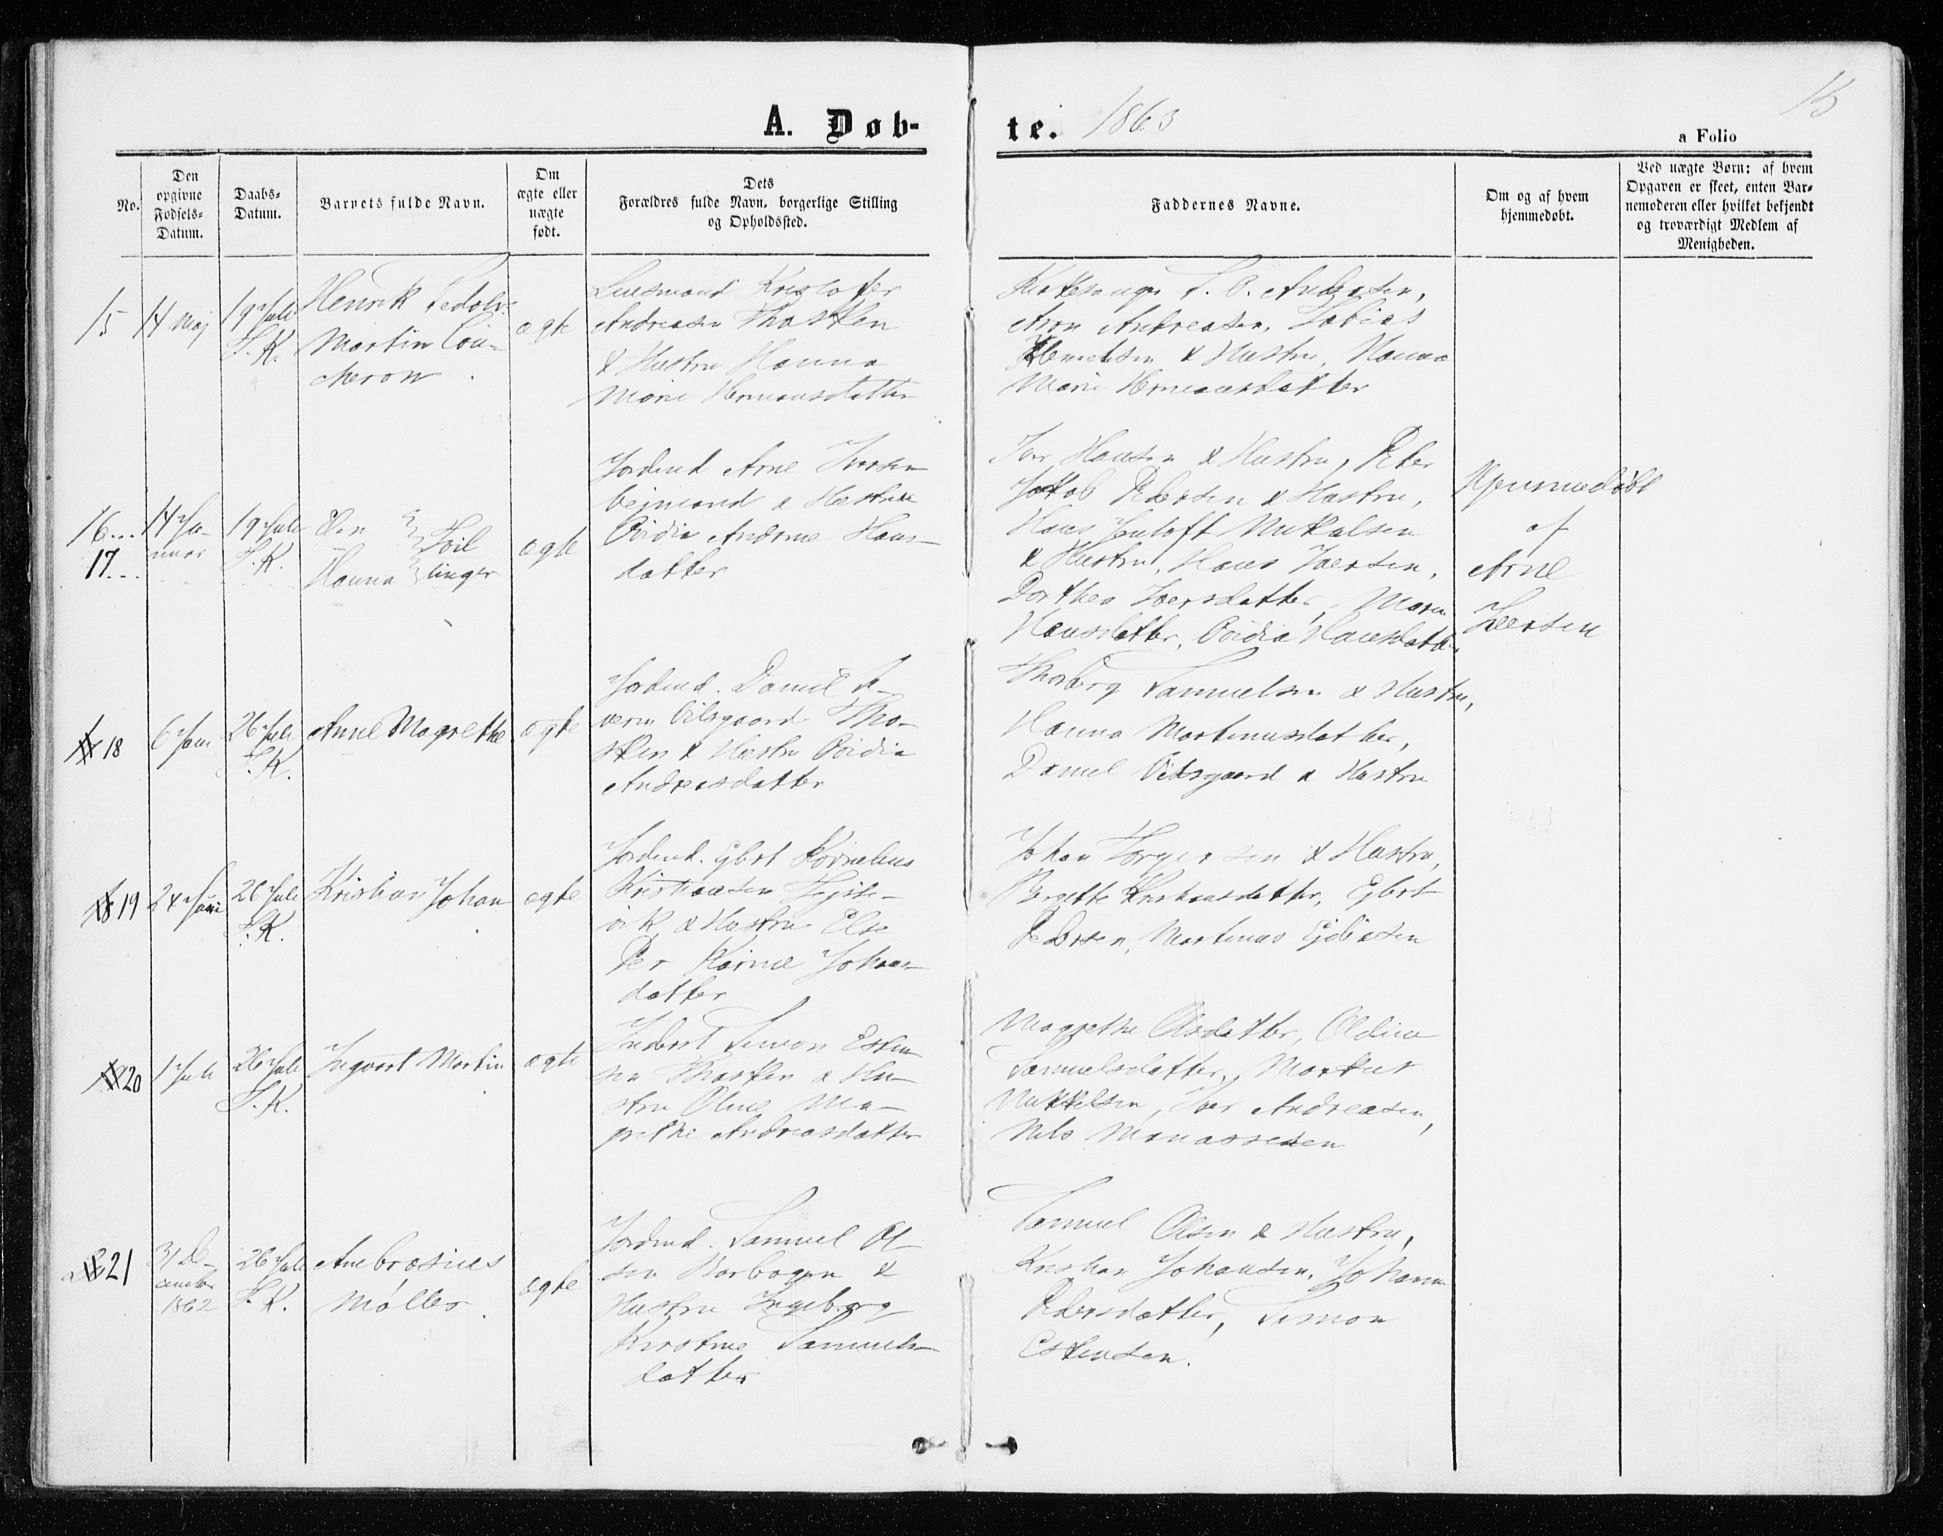 A. Døb-
te. 1863
15
a Folio
No.
Den
opgivne
Fødsels-
Datum.
Daabs-
Datum.
Barnets fulde Navn.
Om
ægte eller
uægte
født.
Dets
Forældres fulde Navn, borgerlige Stilling
og Opholdssted.
Faddernes Navne.
Om og af hvem
hjemmedøbt.
Ved uægte Børn: af hvem
Opgaven er skeet, enten Bar-
nemoderen eller hvilket bekjendt
og troværdigt Medlem af
Menigheden.
15
14 Maj
19 Juli
S. K.
Henrik
Martin Cou-
cheron
ægte
Lensmand Kristofer
Andreasen
& Hustru Hanna
Marie Hermansdatter
Andersen,
Aron Andreasen, Tobias
& Hustru, Hanna
Marie Hermansdatter
16...
17...
14 Ja-
nuar
19 Juli
S. K.
Hanna
Tvil
linger
ægte
Jordend Arne Iversen
& Hustru
Andrine Hans-
datter
Iver Hansen & Hustru, Peder
Jakob Pedersen & Hustru,
Hans Mikalsen
& Hustru, Hans Iversen,
Dorthea Iversdatter, Maren
Hansdatter, Hansdatter
Hjemmedøbt
af
Arne
Iversen
18
6 Juni
26 Juli
S. K.
Anne Magrethe
ægte
Jordend. Daniel Se-
verin Oilsgaard
& Hustru
Andreasdatter
Thorberg Samuelsen & Hustru,
Hanna Martinusdatter,
Daniel Oilsgaard & Hustru
19
24 Juni
26 Juli
S. K.
Kristian Johan
ægte
Jordend. Ejbert Kornelius
Kristiansen
vik & Hustru Else
Johans-
datter
Johan Torgersen & Hustru,
Kristiansdatter, Ejbert
Pedersen, Martinus
20
1 Juli
26 Juli
S. K.
Ingvart Martin
ægte
Simon Esten
sen & Hu-
stru Oline Ma-
grethe Andreasdatter
Magrethe Olsdatter, Oldine
Samuelsdatter, Markus
Mikkelsen, Iver Andreasen,
Nils Manassesen
21
31 De-
cember
1862
26 Juli
S. K.
Ambrosius
Møller
ægte
Jordend. Samuel Ol
sen &
Hustru Ingeborg
Kirstine Samuels-
datter
Samuel Olsen & Hustru,
Kristian Johansen, Johanna
Pedersdatter, Simon
Estensen.